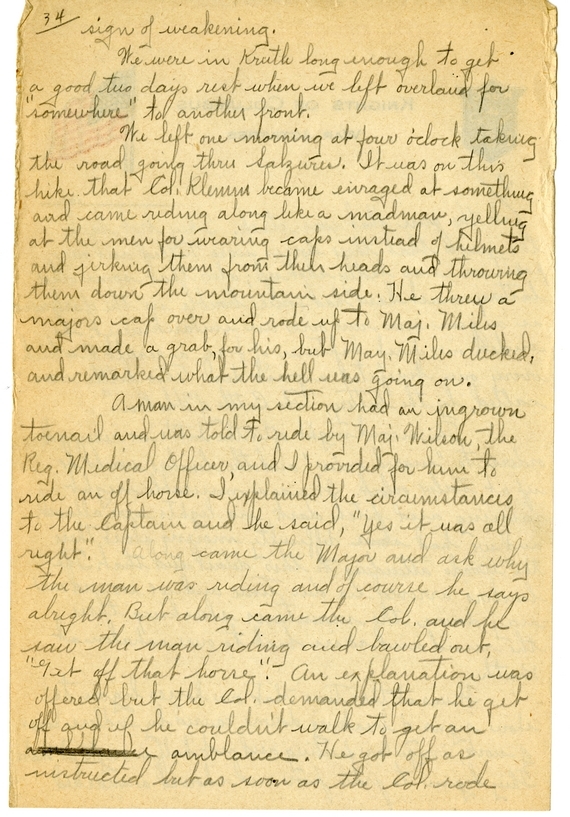 34
sign of weakening.
We were in Kruth long enough to get
a good two days rest when we left overland for
"somewhere" to another front.
We left one morning at four o'clock taking
the road going thru Salzures. It was on this
hike that Col. Klemm became enraged at something
and came riding along like a madman, yelling
at the men for wearing caps instead of helmets
and jirking them from their heads and throwing
them down the mountain side. He threw a
majors cap over and rode up to Maj. Miles
and made a grab, for his, but May. Miles ducked,
and remarked what the hell was going on.
A man in my section had an ingrown
toenail and was told to ride by Maj. Wilson, the
Reg. Medical Officer, and I provided for him to
ride an off horse. I explained the circumstances
to the Captain and he said, "Yes it was all
right". Along came the Major and ask why
the man was riding and of course he says
alright. But along came the Col. and he
saw the man riding and bawled out,
"Get off that horse". An explanation was
offered but the Col. demanded that he get
off and if he couldn't walk to get an
amblance. He got off as
instructed but as soon as the Col. rode